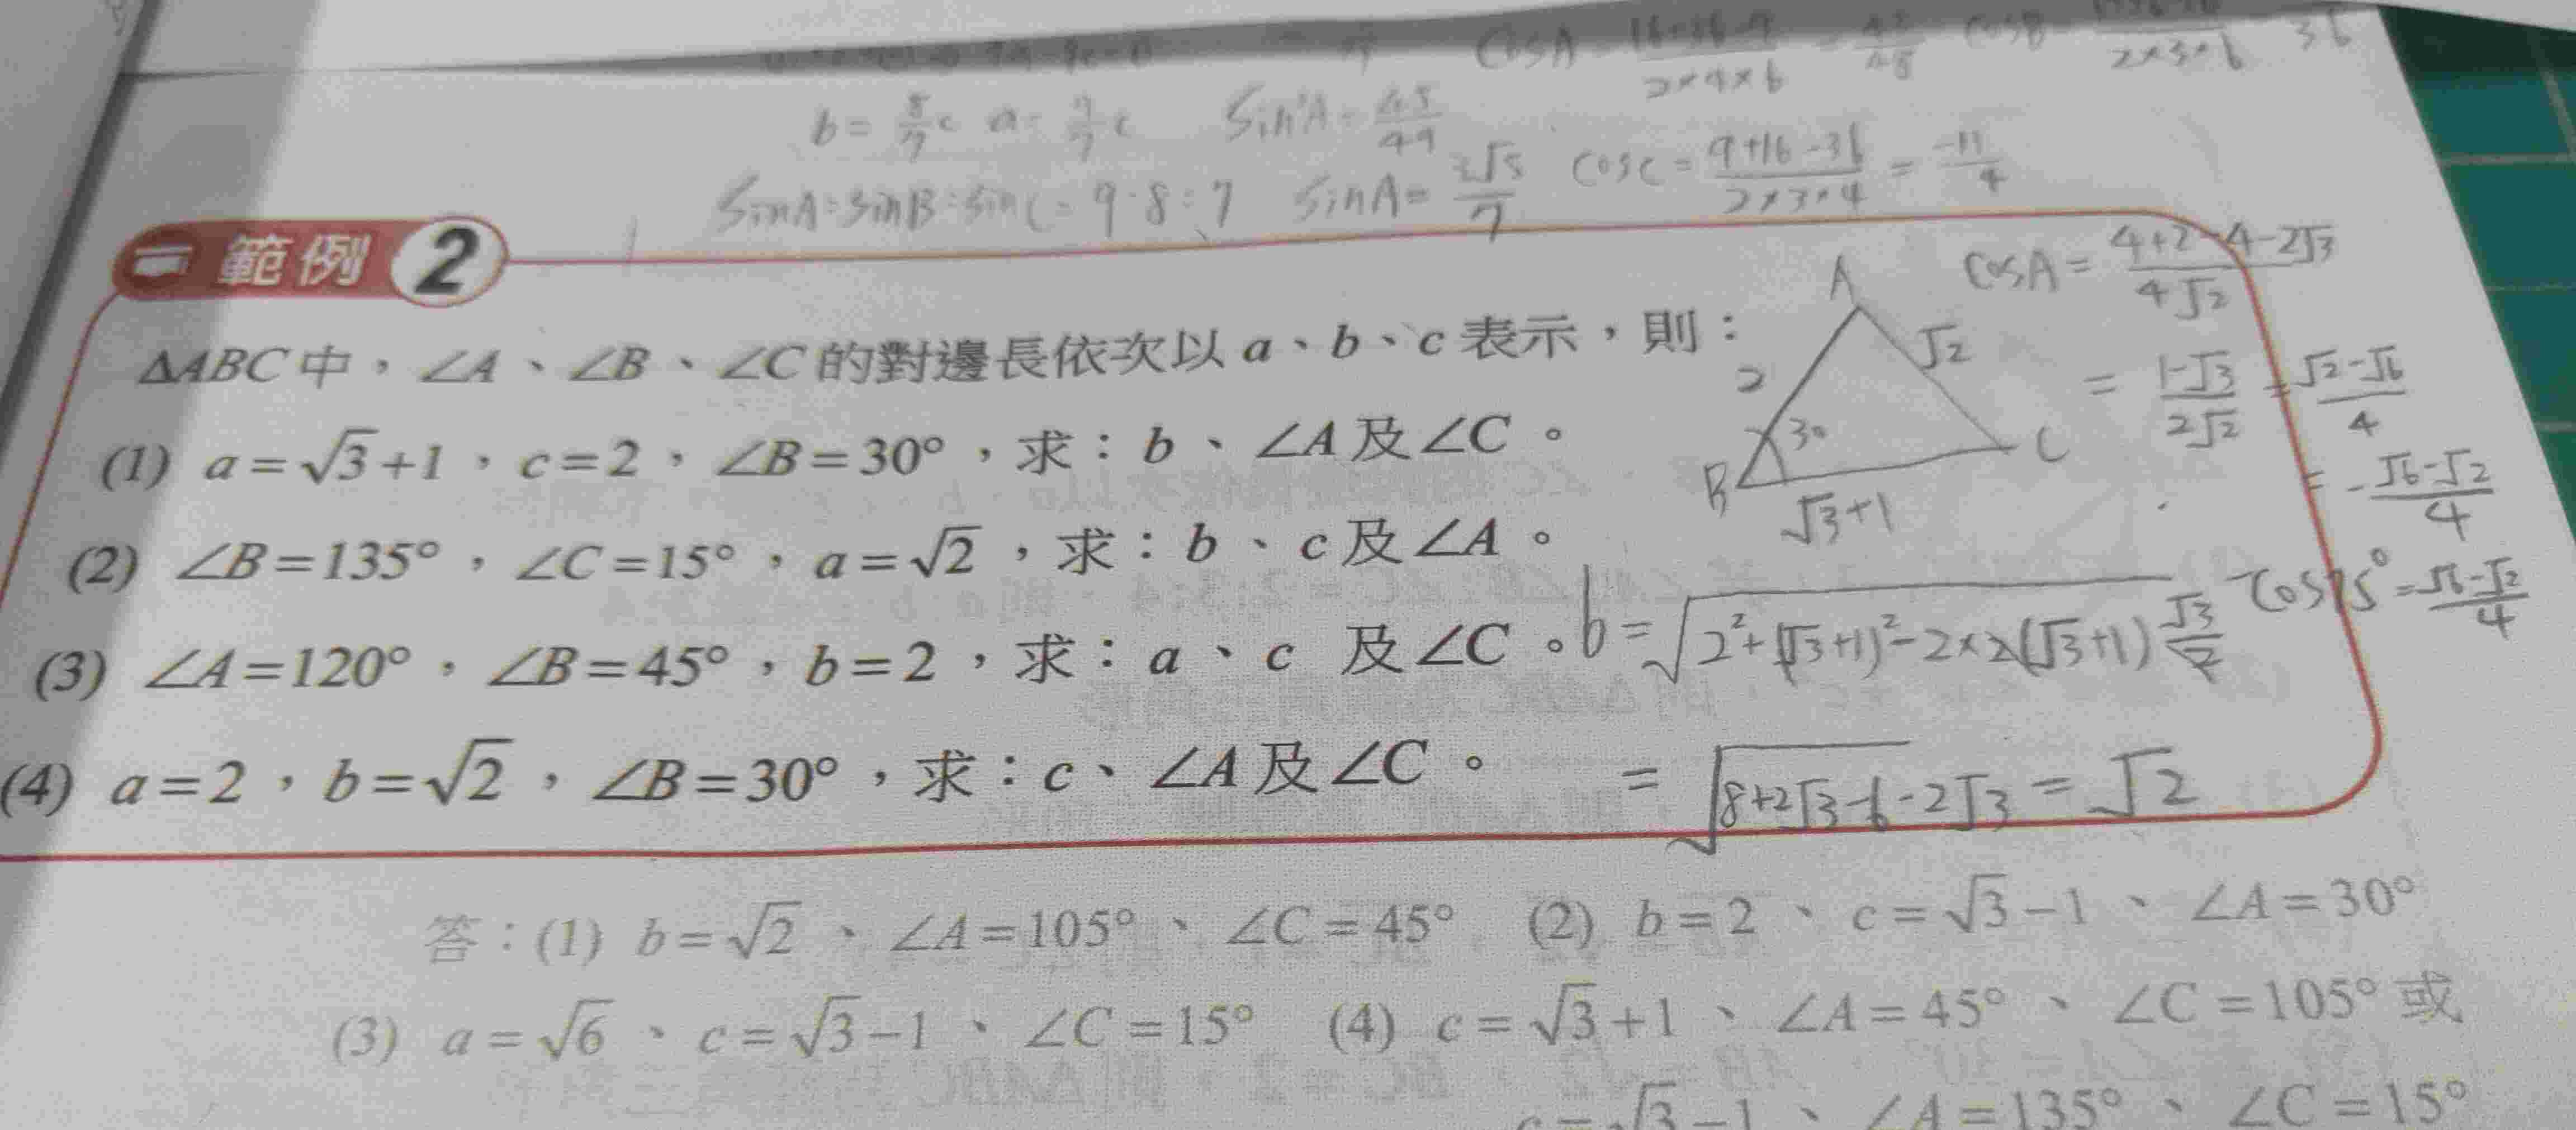 b = 8/7 c a = 9/7 c sin²A = 45/49
cosC = (9+16-36)/(2×3×4) = -11/4
sinA:sinB:sinC = 9:8:7 sinA = 3√5/7
範例 2
△ABC 中，∠A、∠B、∠C 的對邊長依次以 a、b、c 表示，則：
(1) a=√3+1，c=2，∠B=30°，求：b、∠A 及 ∠C。
(2) ∠B=135°，∠C=15°，a=√2，求：b、c 及 ∠A。
(3) ∠A=120°，∠B=45°，b=2，求：a、c 及 ∠C。
(4) a=2，b=√2，∠B=30°，求：c、∠A 及 ∠C。
A
2 √2
B 30° C
√3+1
cosA = (4+2-4-2√3)/(4√2)
= (1-√3)/(2√2) = (√2-√6)/4
= -(√6-√2)/4
cos75° = (√6-√2)/4
b = √(2²+(√3+1)²-2×2(√3+1) √3/2)
= √(8+2√3-6-2√3) = √2
答：(1) b=√2、∠A=105°、∠C=45° (2) b=2、c=√3-1、∠A=30°
(3) a=√6、c=√3-1、∠C=15° (4) c=√3+1、∠A=45°、∠C=105° 或
c=√3-1、∠A=135°、∠C=15°